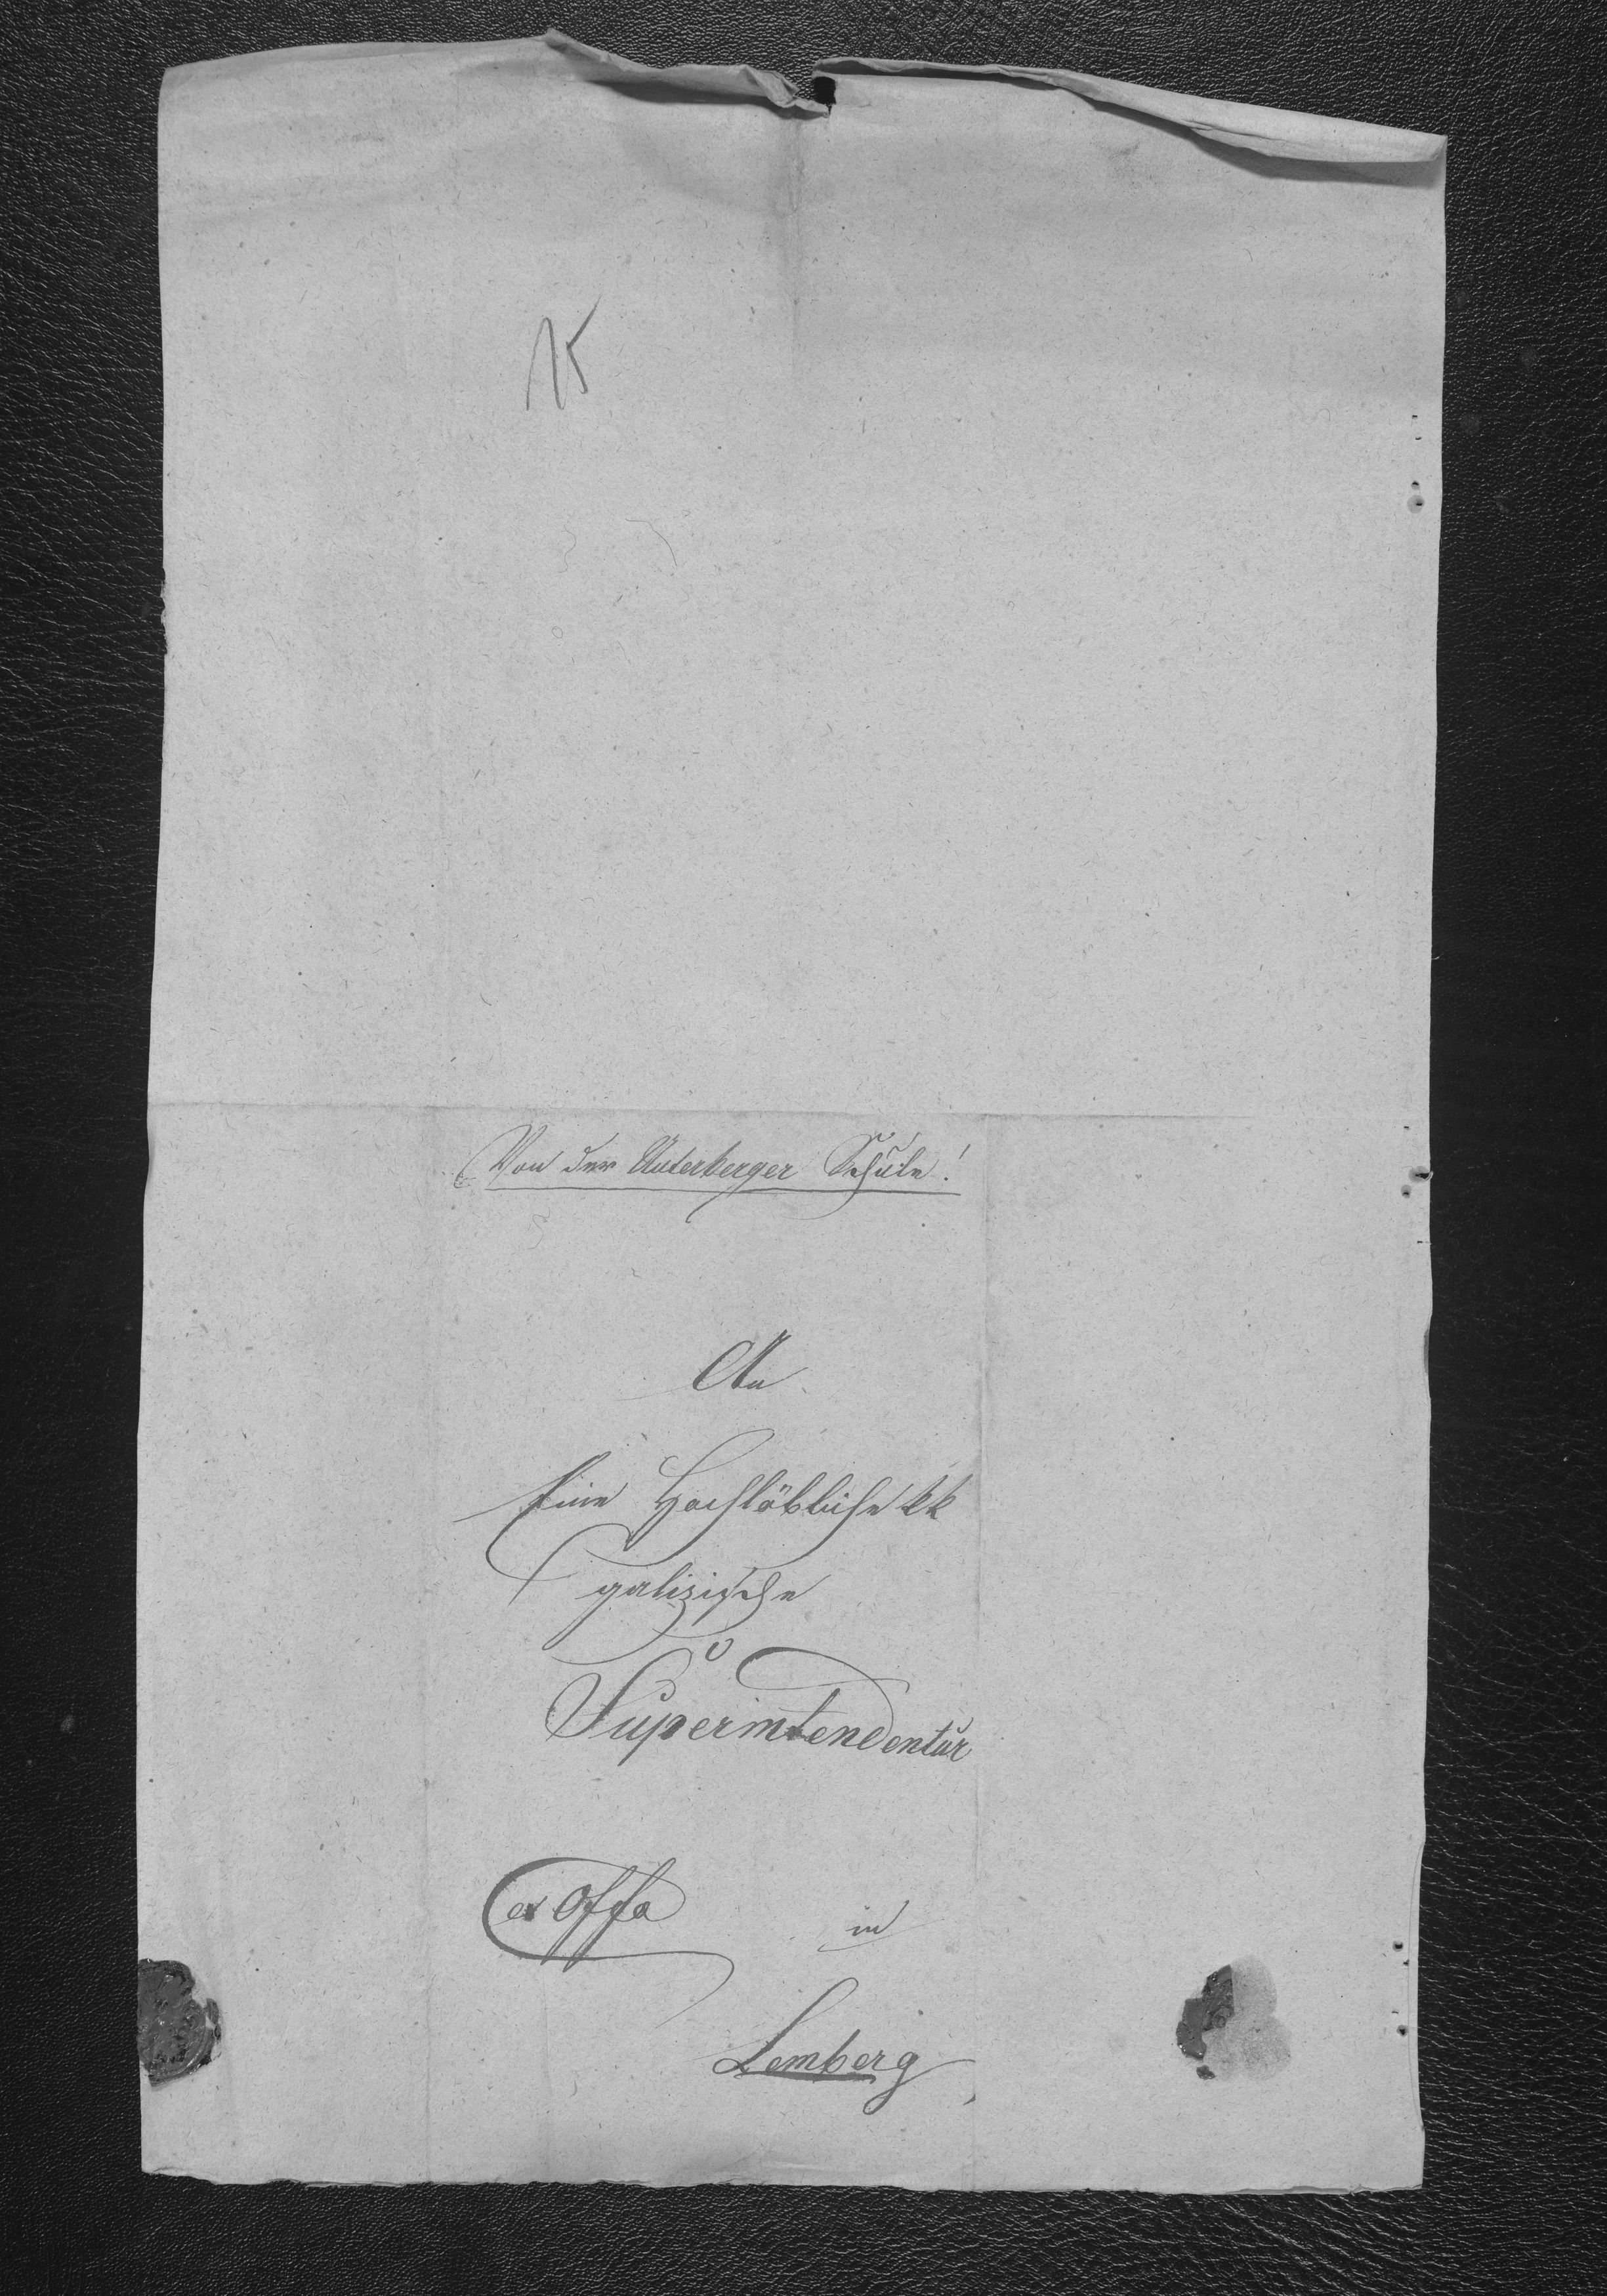 15
Von der Unterberger Schule!
An
Eine Hochlöbliche kk
galizische
Superintendentur
ex Offo
in
Lemberg